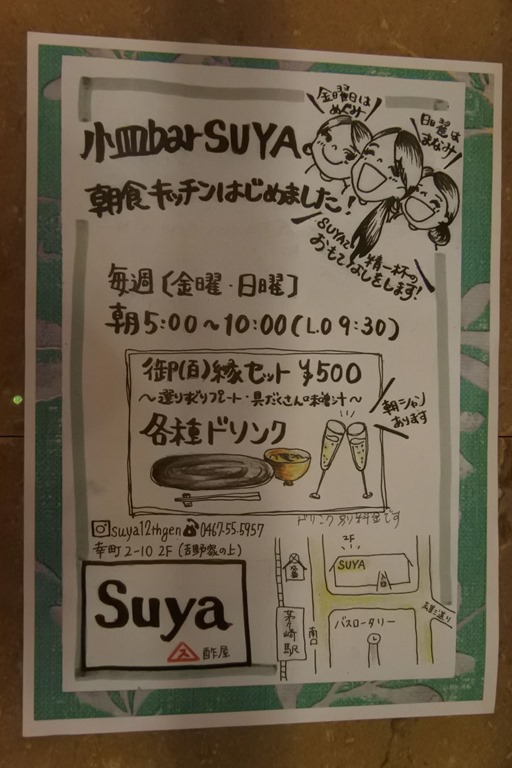 小皿bar SUYA
朝食キッチンはじめました!
金曜日は
めぐみ
日曜は
まなみ
SUYAで精一杯の
おもてなしをします!
毎週〔金曜・日曜〕
朝5:00〜10:00(L.O 9:30)
御(百)縁セット ¥500
〜選りどりプレート・具だくさんの味噌汁〜
各種ドリンク
朝シャン
あります
ドリンク別料金です
suya12thgen 0467-55-5957
幸町2-10 2F (吉野家の上)
Suya
ス 酢屋
2F
SUYA
入口
茅ヶ崎駅
南口
バスロータリー